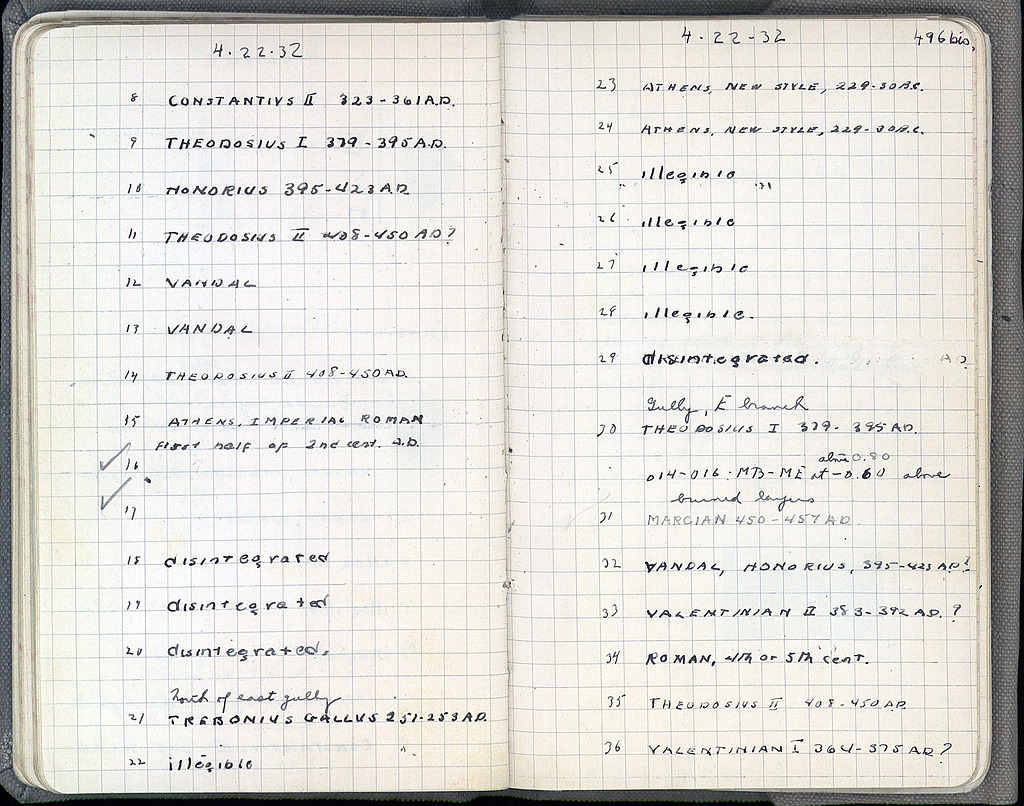 4.22.32
8 CONSTANTIVS II 323-361 A.D.
9 THEODOSIUS I 379-395 A.D.
10 HONORIUS 395-423 AD
11 THEODOSIUS II 408-450 AD?
12 VANDAL
13 VANDAL
14 THEODOSIUS II 408-450 AD.
15 ATHENS, IMPERIAL ROMAN
First half of 2nd cent. A.D.
16
17
18 disintegrated
19 disintegrated
20 disintegrated.
North of east gully
21 TREBONIUS GALLUS 251-253 AD.
22 illegible
4.22-32
496bis.
23 ATHENS, NEW STYLE, 229-30 B.C.
24 ATHENS, NEW STYLE, 229-30 B.C.
25 illegible
26 illegible
27 illegible
28 illegible.
29 disintegrated. A.D.
Gully, E branch
30 THEODOSIUS I 379-395 AD.
above 0.80
014-016: MB-ME at -0.60 above
burned layers
31 MARCIAN 450-457 AD.
32 VANDAL, HONORIUS, 395-423 AD?
33 VALENTINIAN II 383-392 AD.?
34 ROMAN, 4th or 5th cent.
35 THEODOSIUS II 408-450 AD.
36 VALENTINIAN I 364-375 AD?